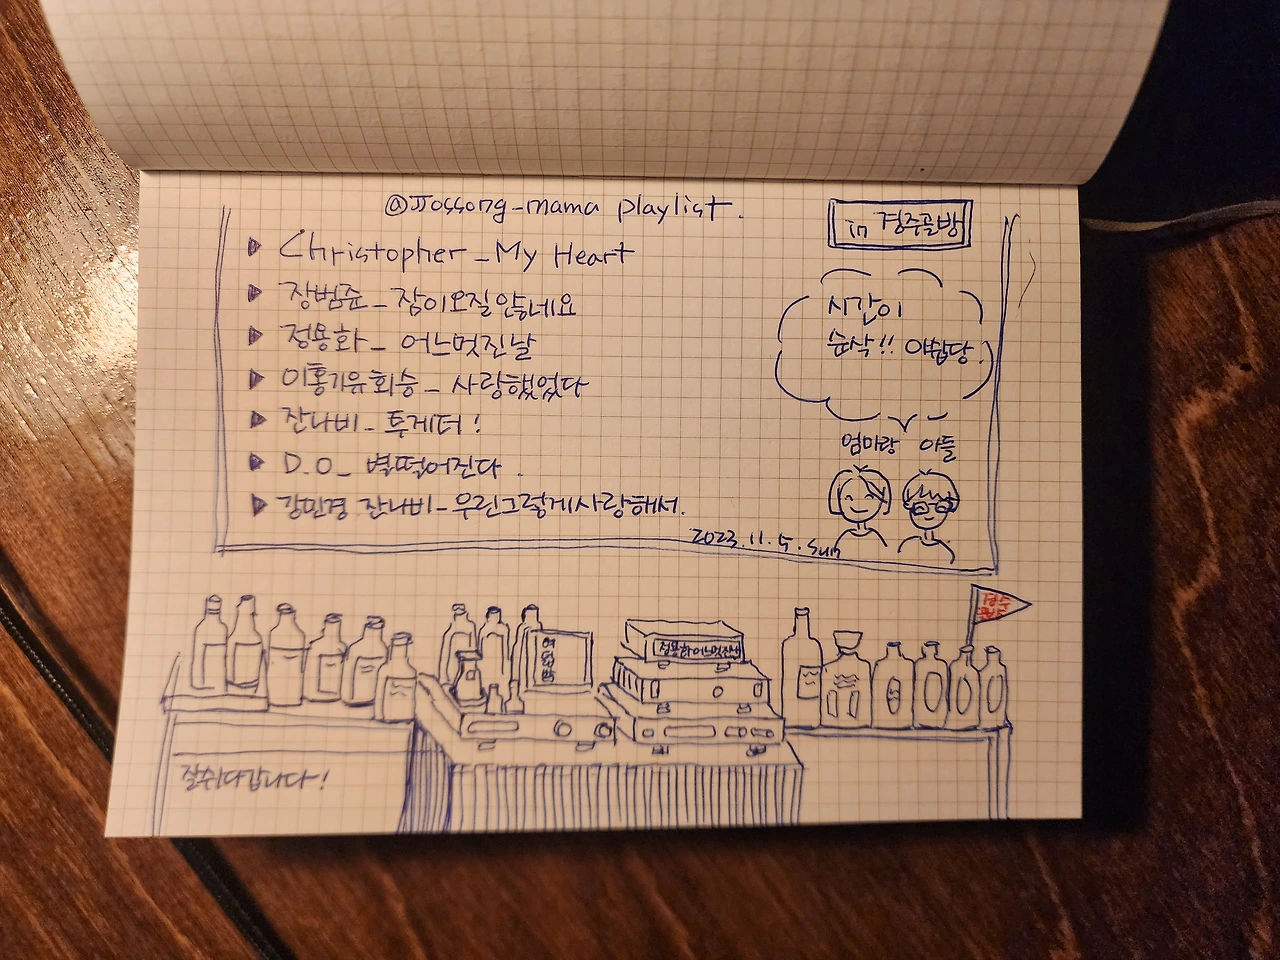 @jjossong-mama playlist.
in 경주골방
▶ Christopher - My Heart
▶ 장범준 - 잠이오질않네요
▶ 정용화 - 어느멋진날
▶ 이홍기유회승 - 사랑했었다
▶ 잔나비 - 투게더!
▶ D.O - 별떨어진다.
▶ 강민경 잔나비 - 우린그렇게사랑해서.
시간이
순삭!! 아쉽당.
엄마랑 아들
2023.11.5.Sun
정용화어느멋진날
잘쉬다갑니다!